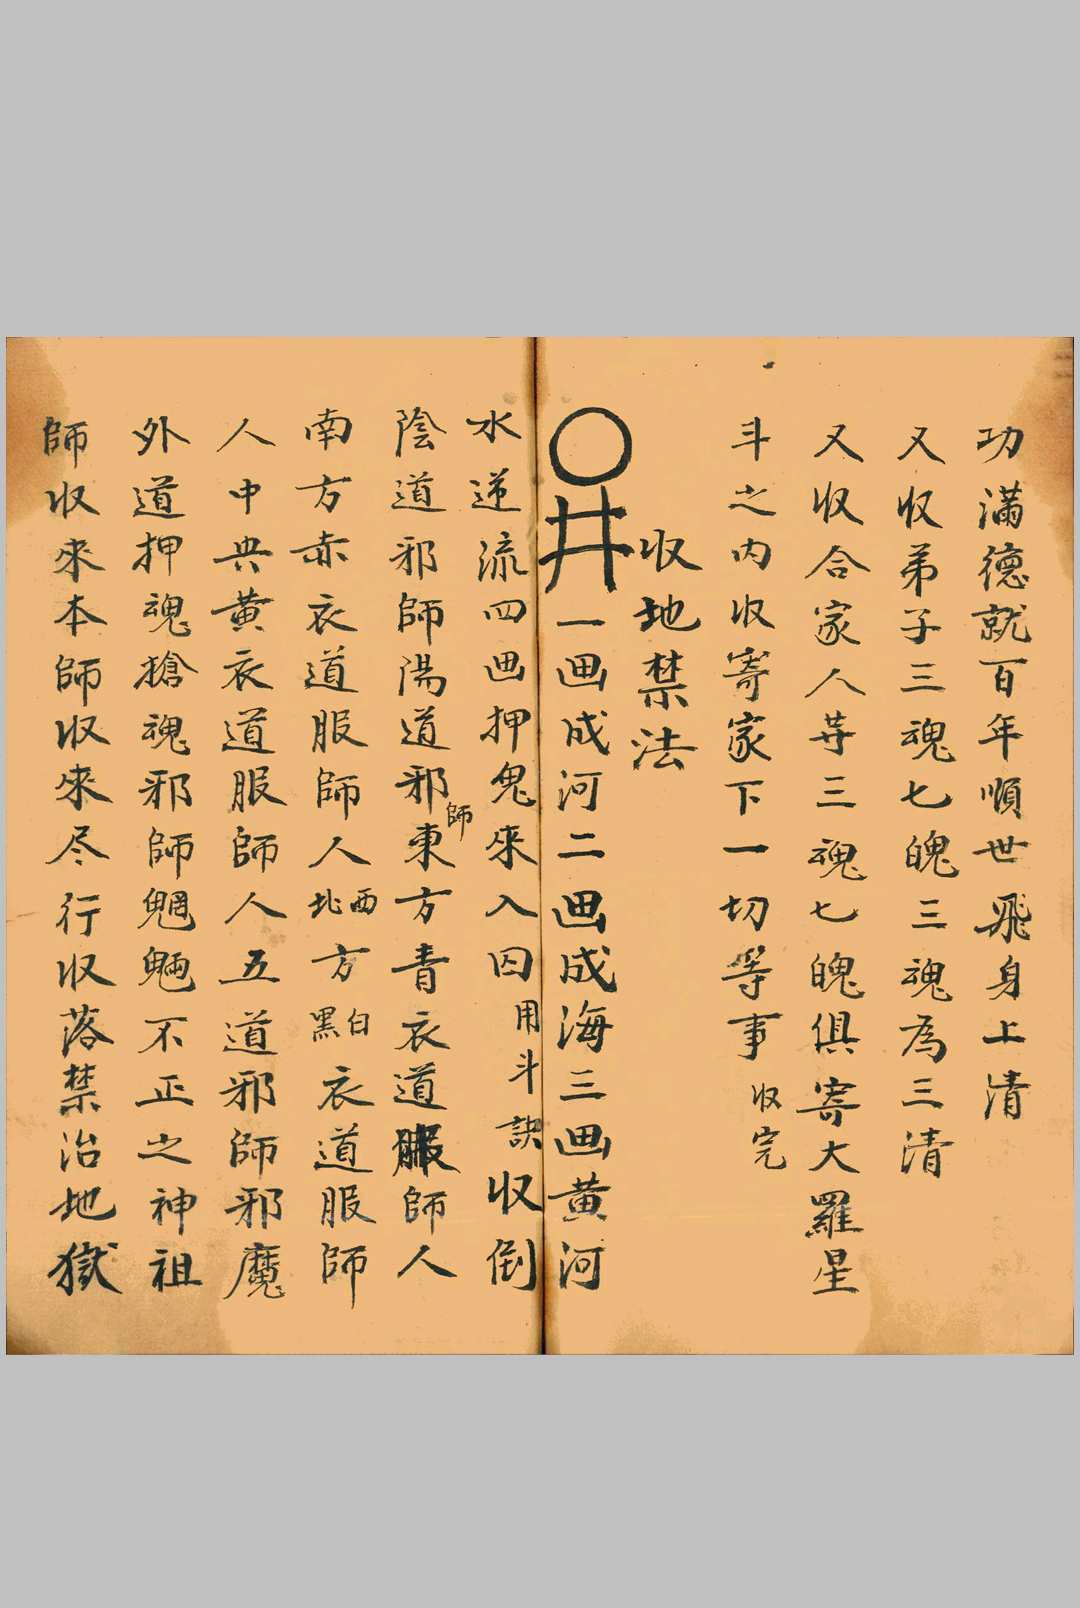 功滿德就百年順世飛身上清
又收弟子三魂七魄三魂為三清
又收合家人等三魂七魄俱寄大羅星
斗之内收寄家下一切等事收完
收地禁法
〇井一画成河二画成海三画黄河
水逆流四画押鬼來入囚用斗訣收倒
陰道邪師陽道邪師東方青衣道服師人
南方赤衣道服師人西北方白黑衣道服師
人中央黄衣道服師人五道邪師邪魔
外道押魂搶魂邪師魍魎不正之神祖
師收來本師收來尽行收落禁治地獄